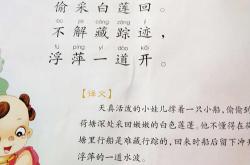 偷采白莲回。
bù jiě cáng zōng jì
不解藏踪迹，
fú píng yí dào kāi
浮萍一道开。
【译文】
天真活泼的小娃儿撑着一只小船，偷偷到
荷塘深处采回嫩嫩的白色莲蓬。他不懂得在荷
塘里行船是难藏行踪的，回来时船后留下冲
浮萍的一道水波。